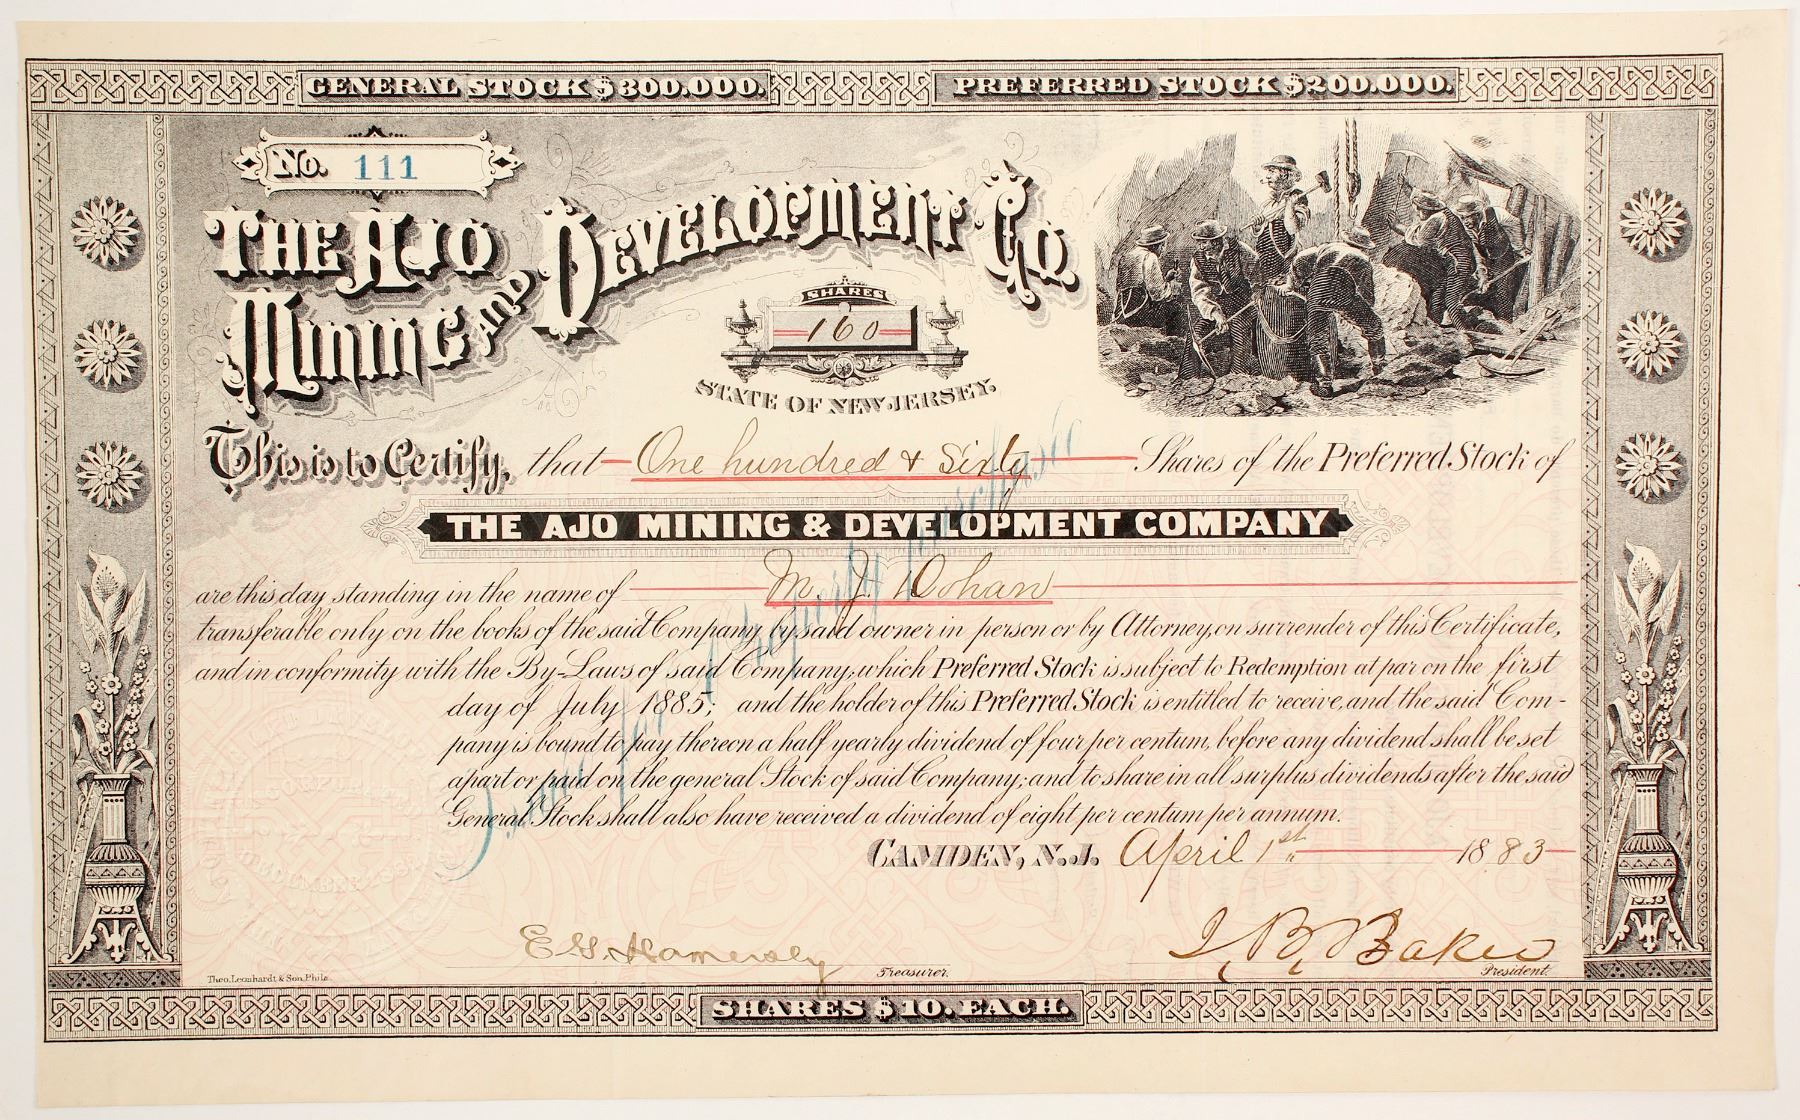 GENERAL STOCK $300.000. PREFERRED STOCK $200.000.
No. 111
THE AJO MINING AND DEVELOPMENT CO.
SHARES
160
STATE OF NEW JERSEY.
This is to Certify, that One hundred & Sixty Shares of the Preferred Stock of
THE AJO MINING & DEVELOPMENT COMPANY
are this day standing in the name of M. J. Dohan
transferable only on the books of the said Company by said owner in person or by Attorney, on surrender of this Certificate,
and in conformity with the By-Laws of said Company; which Preferred Stock is subject to Redemption at par on the first
day of July 1885; and the holder of this Preferred Stock is entitled to receive, and the said Com-
pany is bound to pay thereon a half yearly dividend of four per centum, before any dividend shall be set
apart or paid on the general Stock of said Company; and to share in all surplus dividends after the said
General Stock shall also have received a dividend of eight per centum per annum.
Issued for Property purchased
CAMDEN, N.J. April 1st 1883
E. G. Hamersly Treasurer.
I. B. Baker President.
Theo. Leonhardt & Son. Phila.
SHARES $10. EACH.